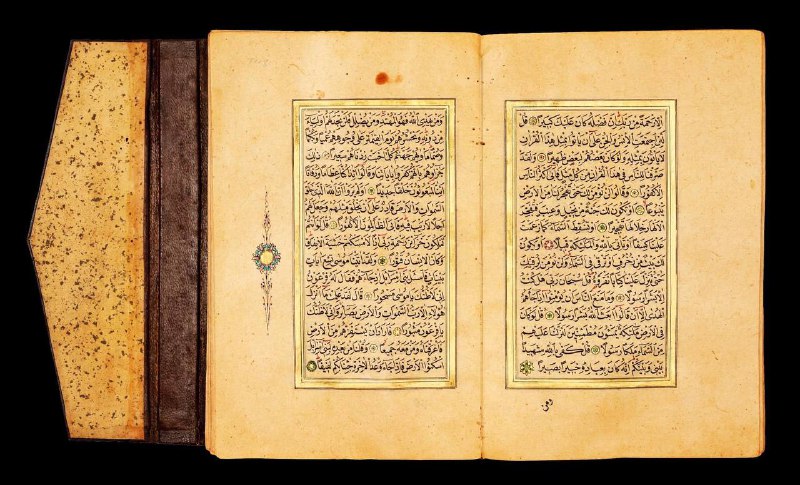 اِلَّا رَحْمَةً مِنْ رَبِّكَ اِنَّ فَضْلَهُ كَانَ عَلَيْكَ كَبِيرًا قُلْ
لَئِنِ اجْتَمَعَتِ الْاِنْسُ وَالْجِنُّ عَلٰى اَنْ يَأْتُوا بِمِثْلِ هٰذَا الْقُرْاٰنِ
لَا يَأْتُونَ بِمِثْلِهِ وَلَوْ كَانَ بَعْضُهُمْ لِبَعْضٍ ظَهِيرًا وَلَقَدْ
صَرَّفْنَا لِلنَّاسِ فِي هٰذَا الْقُرْاٰنِ مِنْ كُلِّ مَثَلٍ فَاَبٰى اَكْثَرُ النَّاسِ
اِلَّا كُفُورًا وَقَالُوا لَنْ نُؤْمِنَ لَكَ حَتّٰى تَفْجُرَ لَنَا مِنَ الْاَرْضِ
يَنْبُوعًا اَوْ تَكُونَ لَكَ جَنَّةٌ مِنْ نَخِيلٍ وَعِنَبٍ فَتُفَجِّرَ
الْاَنْهَارَ خِلَالَهَا تَفْجِيرًا اَوْ تُسْقِطَ السَّمَاءَ كَمَا زَعَمْتَ
عَلَيْنَا كِسَفًا اَوْ تَأْتِيَ بِاللّٰهِ وَالْمَلٰئِكَةِ قَبِيلًا اَوْ يَكُونَ
لَكَ بَيْتٌ مِنْ زُخْرُفٍ اَوْ تَرْقٰى فِي السَّمَاءِ وَلَنْ نُؤْمِنَ لِرُقِيِّكَ
حَتّٰى تُنَزِّلَ عَلَيْنَا كِتَابًا نَقْرَؤُهُ قُلْ سُبْحَانَ رَبِّي هَلْ كُنْتُ
اِلَّا بَشَرًا رَسُولًا وَمَا مَنَعَ النَّاسَ اَنْ يُؤْمِنُوا اِذْ جَاءَهُمُ
الْهُدٰى اِلَّا اَنْ قَالُوا اَبَعَثَ اللّٰهُ بَشَرًا رَسُولًا قُلْ لَوْ كَانَ
فِي الْاَرْضِ مَلٰئِكَةٌ يَمْشُونَ مُطْمَئِنِّينَ لَنَزَّلْنَا عَلَيْهِمْ
مِنَ السَّمَاءِ مَلَكًا رَسُولًا قُلْ كَفٰى بِاللّٰهِ شَهِيدًا
بَيْنِي وَبَيْنَكُمْ اِنَّهُ كَانَ بِعِبَادِهِ خَبِيرًا بَصِيرًا
ومن
وَمَنْ يَهْدِ اللّٰهُ فَهُوَ الْمُهْتَدِ وَمَنْ يُضْلِلْ فَلَنْ تَجِدَ لَهُمْ اَوْلِيَاءَ
مِنْ دُونِهِ وَنَحْشُرُهُمْ يَوْمَ الْقِيٰمَةِ عَلٰى وُجُوهِهِمْ عُمْيًا وَبُكْمًا
وَصُمًّا مَأْوٰيهُمْ جَهَنَّمُ كُلَّمَا خَبَتْ زِدْنَاهُمْ سَعِيرًا ذٰلِكَ
جَزَاؤُهُمْ بِاَنَّهُمْ كَفَرُوا بِاٰيَاتِنَا وَقَالُوا ءَاِذَا كُنَّا عِظَامًا وَرُفَاتًا
ءَاِنَّا لَمَبْعُوثُونَ خَلْقًا جَدِيدًا اَوَلَمْ يَرَوْا اَنَّ اللّٰهَ الَّذِي خَلَقَ
السَّمٰوَاتِ وَالْاَرْضَ قَادِرٌ عَلٰى اَنْ يَخْلُقَ مِثْلَهُمْ وَجَعَلَ لَهُمْ
اَجَلًا لَا رَيْبَ فِيهِ فَاَبَى الظَّالِمُونَ اِلَّا كُفُورًا قُلْ لَوْ اَنْتُمْ
تَمْلِكُونَ خَزَائِنَ رَحْمَةِ رَبِّي اِذًا لَاَمْسَكْتُمْ خَشْيَةَ الْاِنْفَاقِ
وَكَانَ الْاِنْسَانُ قَتُورًا وَلَقَدْ اٰتَيْنَا مُوسٰى تِسْعَ اٰيَاتٍ
بَيِّنَاتٍ فَسْئَلْ بَنِي اِسْرَائِلَ اِذْ جَاءَهُمْ فَقَالَ لَهُ فِرْعَوْنُ
اِنِّي لَاَظُنُّكَ يَا مُوسٰى مَسْحُورًا قَالَ لَقَدْ عَلِمْتَ مَا اَنْزَلَ
هٰؤُلَاءِ اِلَّا رَبُّ السَّمٰوَاتِ وَالْاَرْضِ بَصَائِرَ وَاِنِّي لَاَظُنُّكَ
يَا فِرْعَوْنُ مَثْبُورًا فَاَرَادَ اَنْ يَسْتَفِزَّهُمْ مِنَ الْاَرْضِ
فَاَغْرَقْنَاهُ وَمَنْ مَعَهُ جَمِيعًا وَقُلْنَا مِنْ بَعْدِهِ لِبَنِي اِسْرَائِلَ
اسْكُنُوا الْاَرْضَ فَاِذَا جَاءَ وَعْدُ الْاٰخِرَةِ جِئْنَا بِكُمْ لَفِيفًا